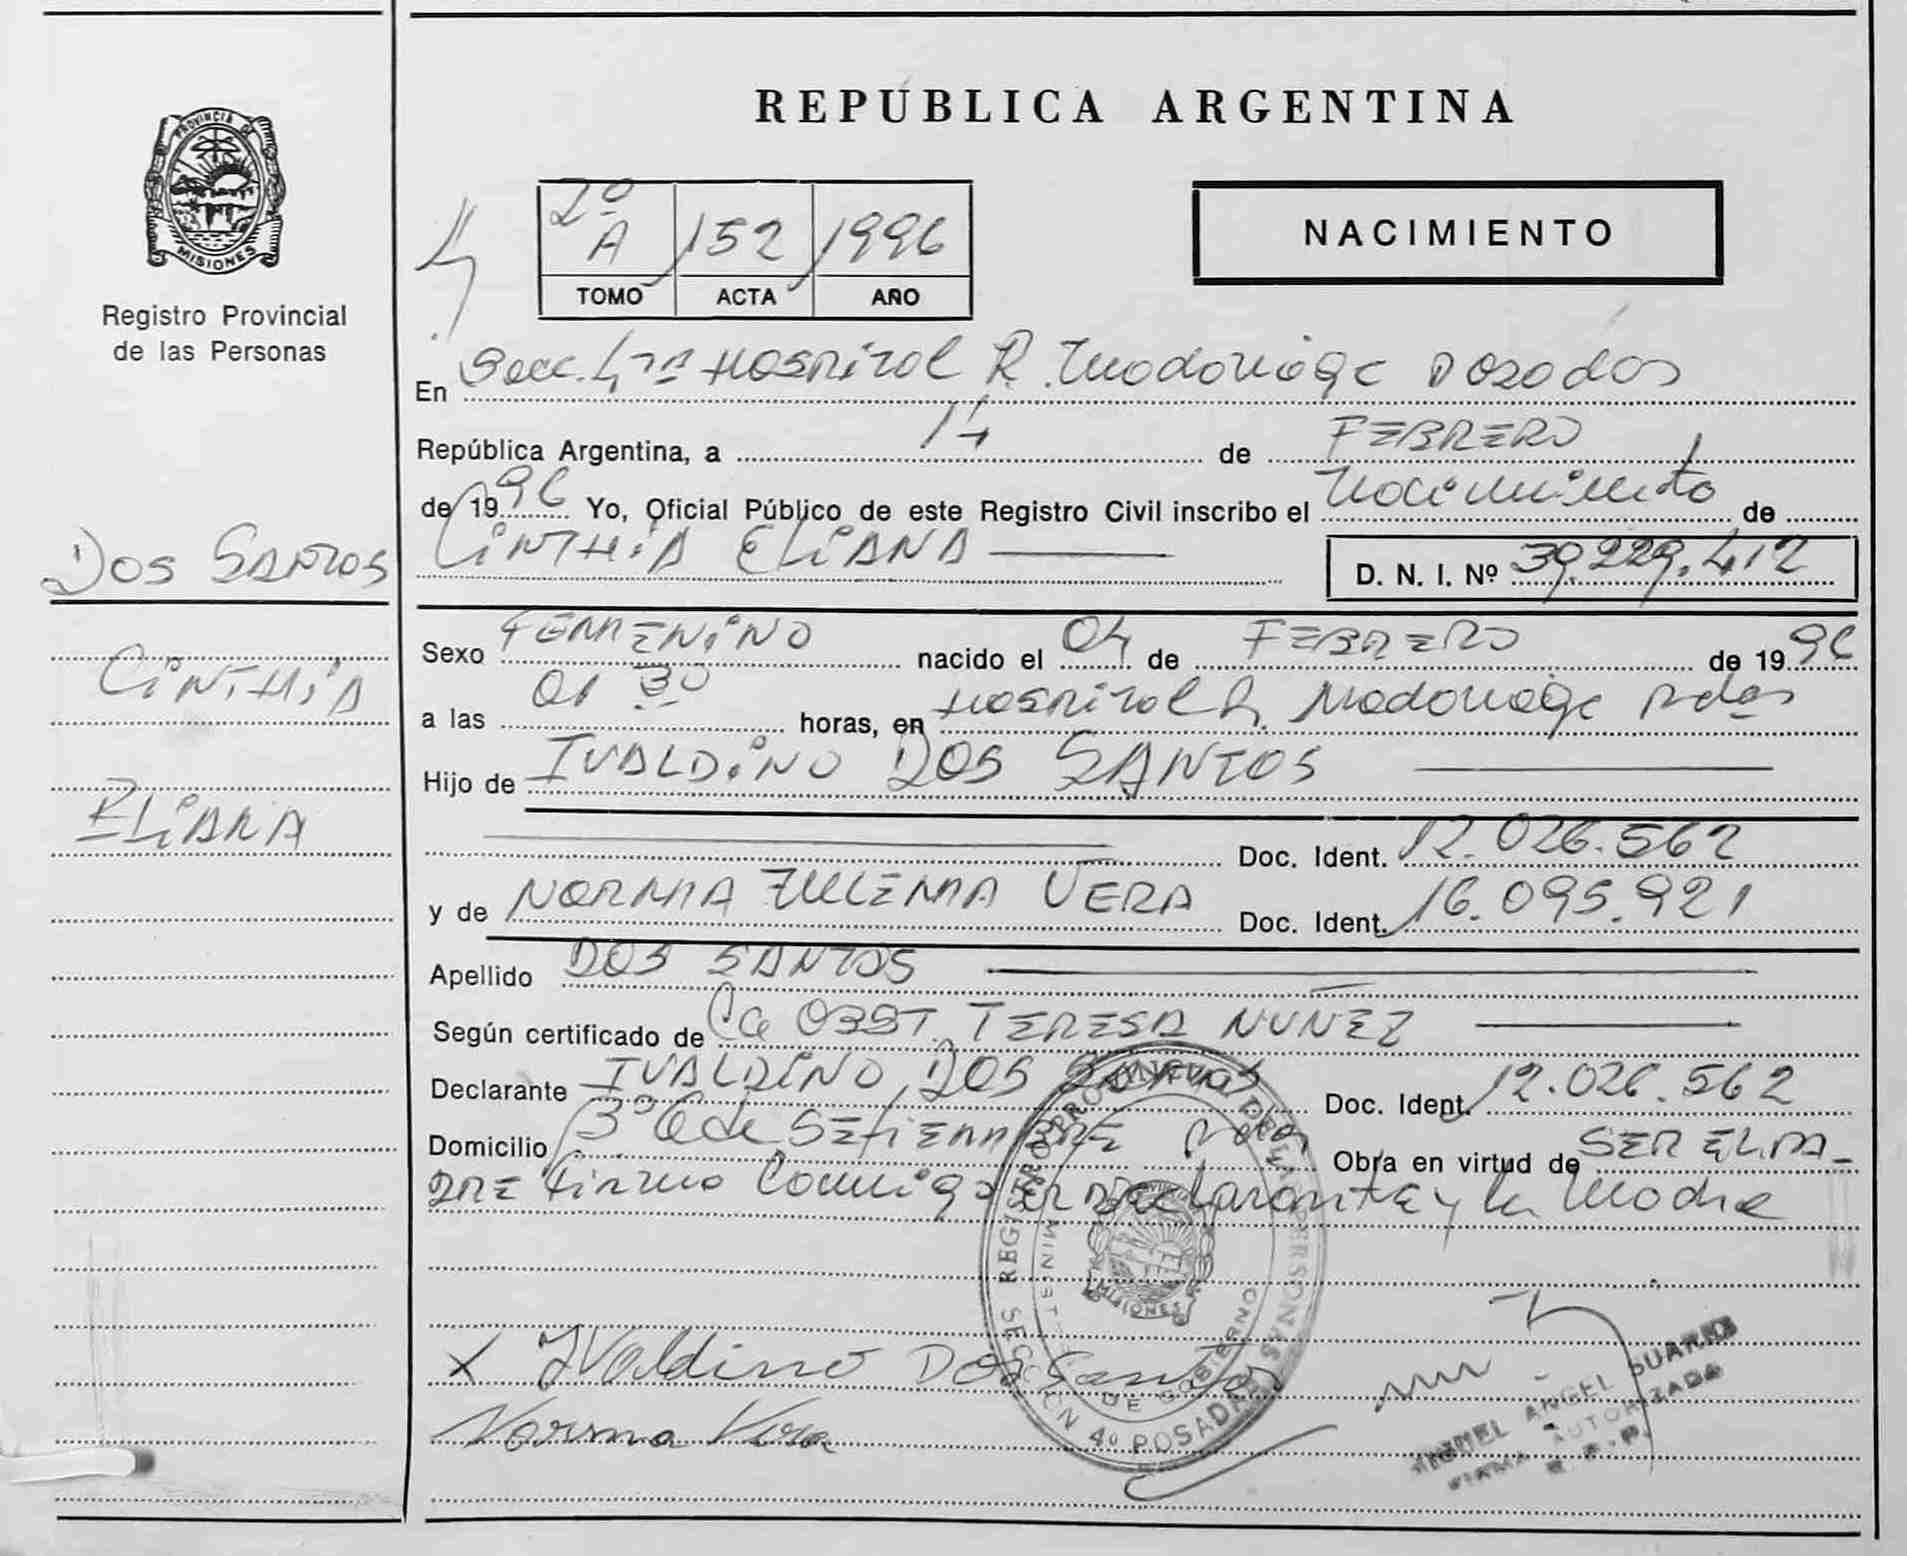 REPÚBLICA ARGENTINA
PROVINCIA DE MISIONES
Registro Provincial
de las Personas
2º A 152 1996
TOMO ACTA AÑO
NACIMIENTO
En Secc. 4ta Hospital R. Madariaga Posadas
República Argentina, a 14 de FEBRERO
de 1996 Yo, Oficial Público de este Registro Civil inscribo el Nacimiento de
CINTHIA ELIANA
D. N. I. Nº 39.229.412
DOS SANTOS
CINTHIA
ELIANA
Sexo FEMENINO nacido el 04 de FEBRERO de 1996
a las 01 30 horas, en Hospital R. Madariaga Pdas
Hijo de IVALDINO DOS SANTOS
Doc. Ident. 12.026.562
y de NORMA ZULEMA VERA Doc. Ident. 16.095.921
Apellido DOS SANTOS
Según certificado de La OBST. TERESA NUÑEZ
Declarante IVALDINO DOS SANTOS Doc. Ident. 12.026.562
Domicilio de SETIEMBRE Pdas Obra en virtud de SER EL PA-
DRE Firma Conmigo El Declarante y la Madre
REGISTRO PROVINCIAL DE LAS PERSONAS
MINISTERIO DE GOBIERNO
MISIONES
SECCIÓN 4º POSADAS
X IValdino Dos Santos
Norma Vera
MIGUEL ANGEL SUAREZ
FIRMA AUTORIZADA
R. P. P.